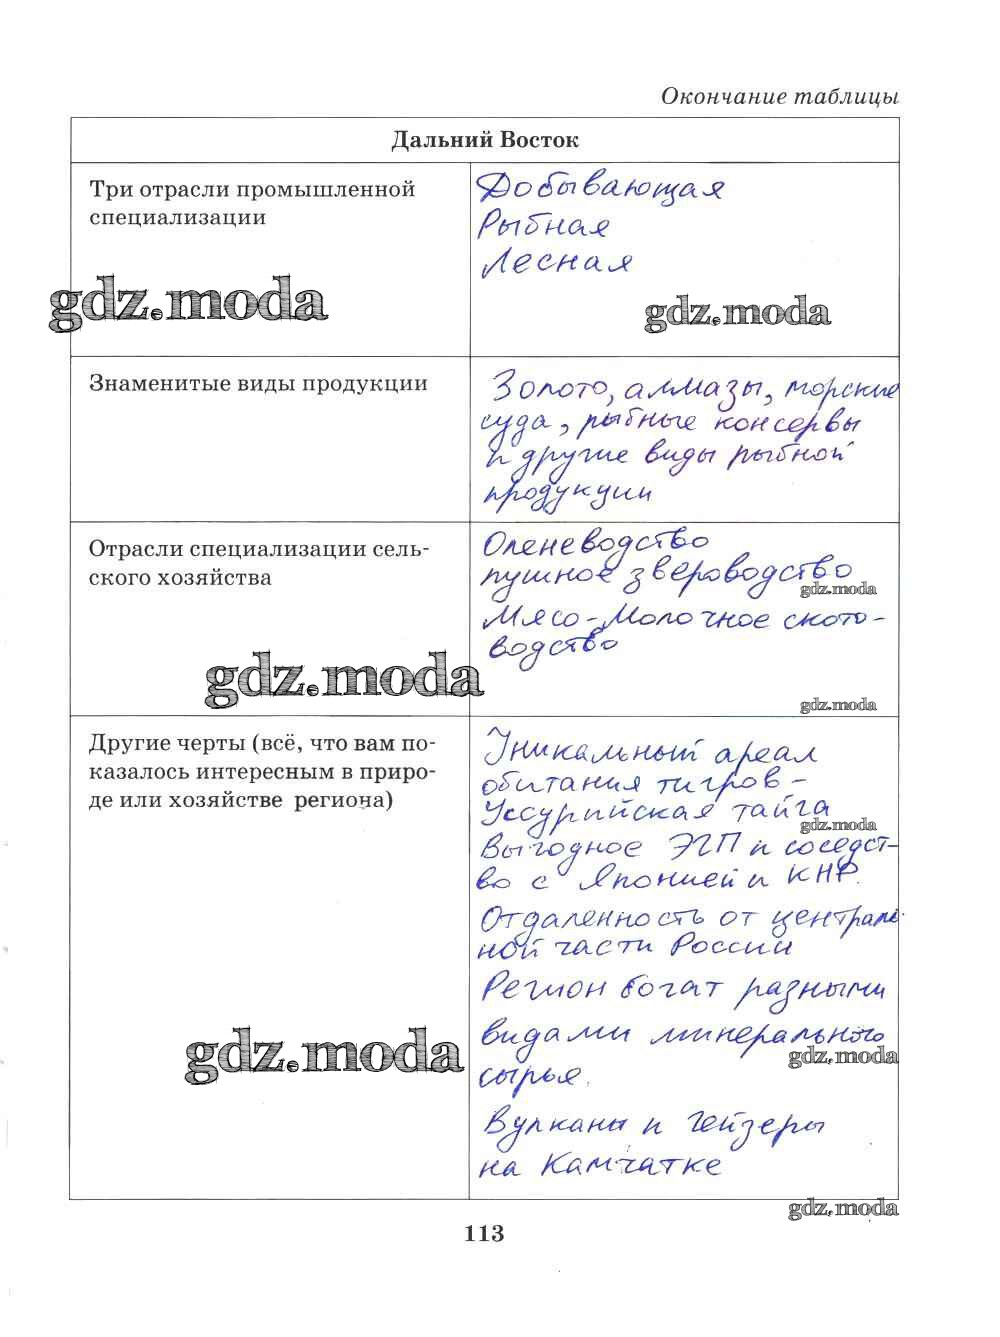 Окончание таблицы
Дальний Восток
Три отрасли промышленной
специализации
Добывающая
Рыбная
Лесная
gdz.moda
gdz.moda
Знаменитые виды продукции
Золото, алмазы, морские
суда, рыбные консервы
и другие виды рыбной
продукции
Отрасли специализации сель-
ского хозяйства
Оленеводство
пушное звероводство
gdz.moda
Мясо-Молочное ското-
водство
gdz.moda
gdz.moda
Другие черты (всё, что вам по-
казалось интересным в приро-
де или хозяйстве региона)
Уникальный ареал
обитания тигров -
Уссурийская тайга
gdz.moda
Выгодное ЭГП и соседст-
во с Японией и КНР.
Отдаленность от централь-
ной части России
Регион богат разными
видами минерального
сырья.
gdz.moda
gdz.moda
Вулканы и гейзеры
на Камчатке
gdz.moda
113